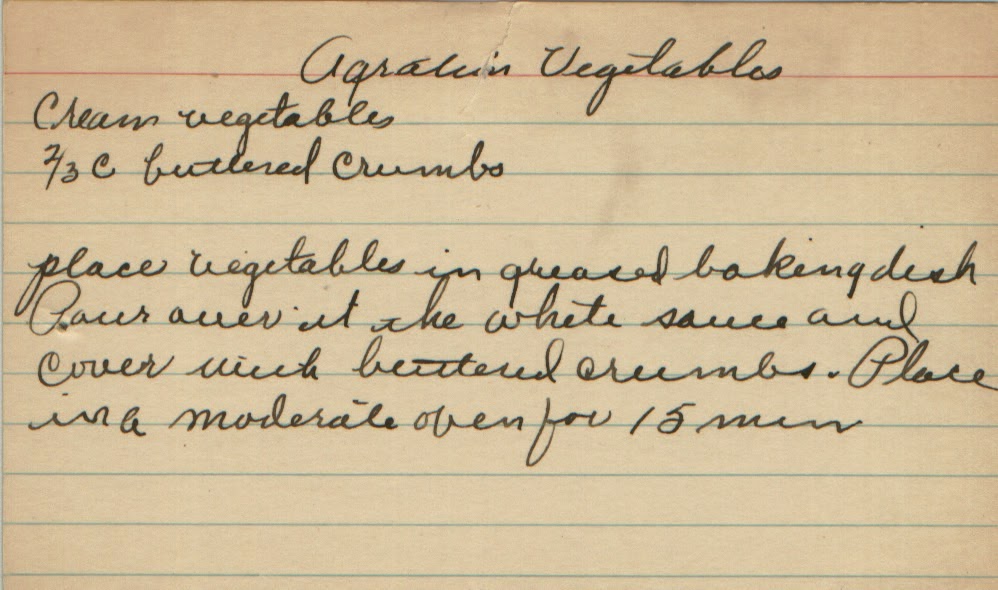 Agratin Vegetables
Cream vegetables
2/3 C buttered Crumbs
place vegetables in greased baking dish
Pour over it the white sauce and
cover with buttered crumbs. Place
in a moderate oven for 15 min